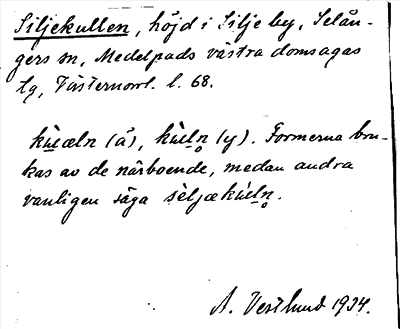 Siljekullen, höjd i Silje by, Selån-
gers sn, Medelpads västra domsagas
tg, Västernorrl. l. 68.
kùlæln (ä), kùln̥ (y). Formerna bru-
kas av de närboende, medan andra
vanligen säga sèljækùln̥.
A. Vestlund 1934.